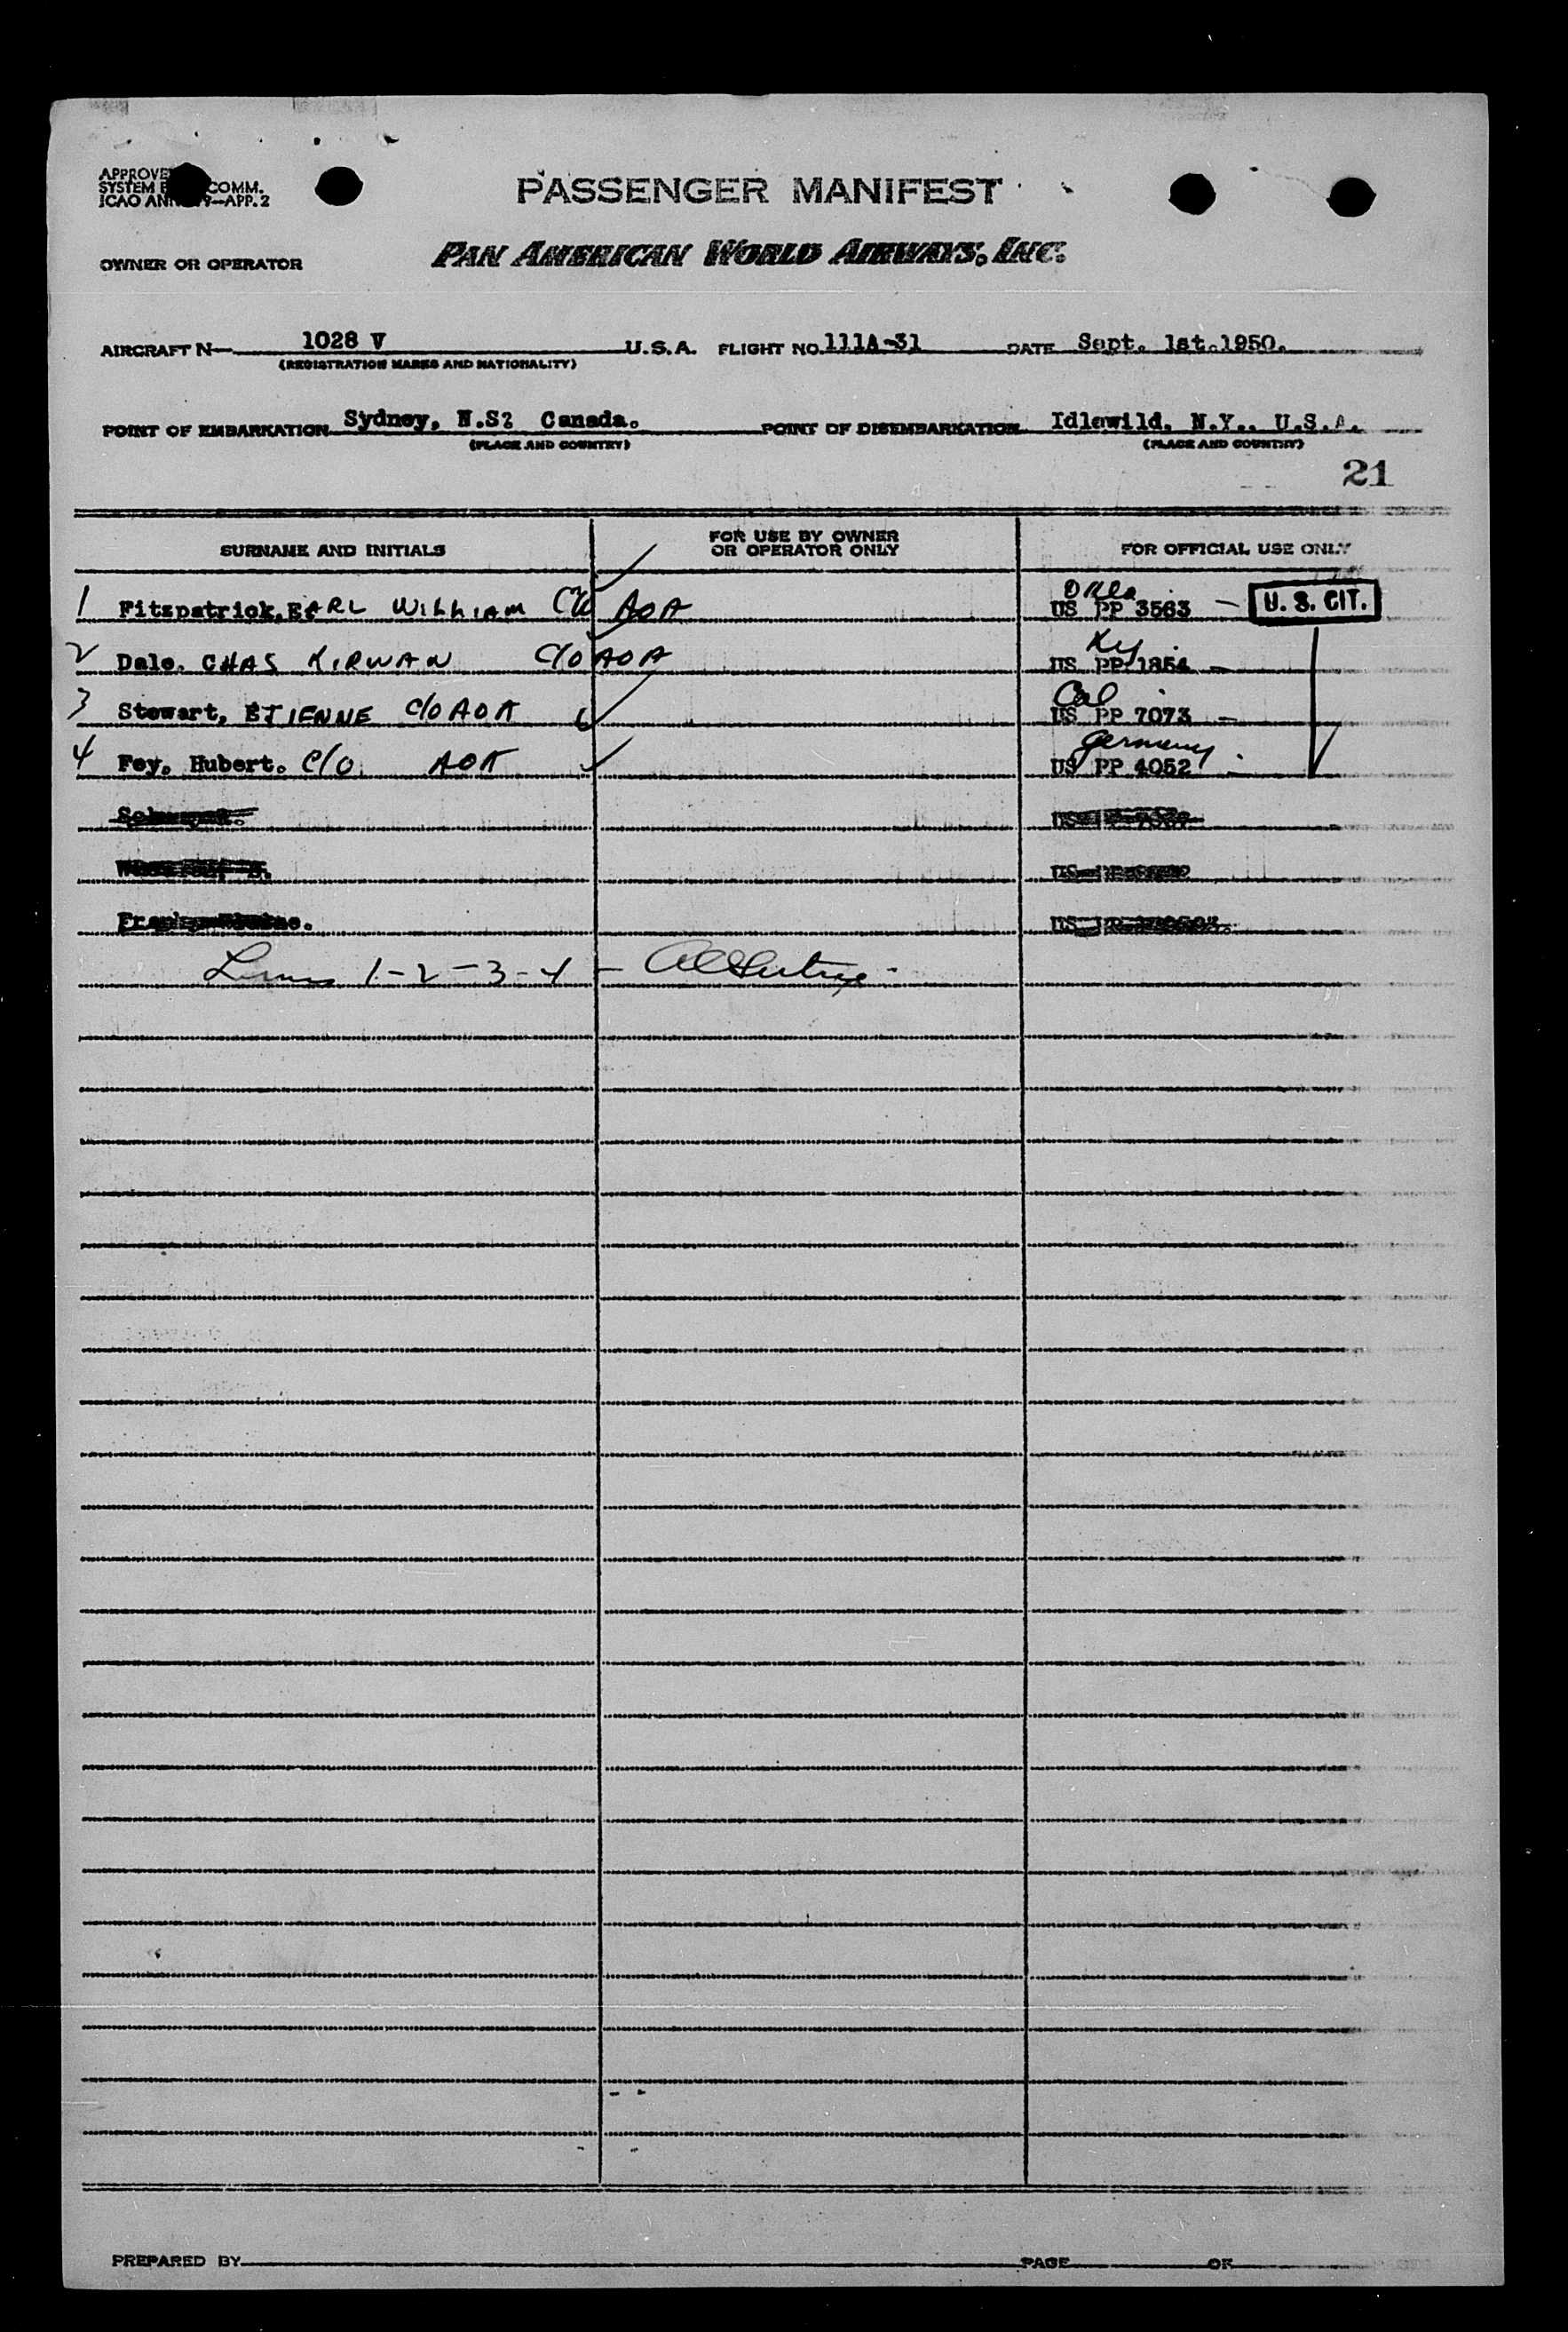 PASSENGER MANIFEST
COMM.
APP. 2
OWNER OR OPERATOR PAN AMERICAN WORLD AIRWAYS, INC.
AIRCRAFT N- 1028 V U.S.A. FLIGHT NO. 111A-31 DATE Sept. 1st.1950.
(REGISTRATION MARKS AND NATIONALITY)
POINT OF EMBARKATION Sydney, N.S? Canada. POINT OF DISEMBARKATION Idlewild, N.Y., U.S.A.
(PLACE AND COUNTRY) (PLACE AND COUNTRY)
21
SURNAME AND INITIALS FOR USE BY OWNER OR OPERATOR ONLY FOR OFFICIAL USE ONLY
Okla
1 Fitzpatrick, EARL WILLIAM C/O AOA US PP 3563 — U. S. CIT.
Ky
2 Dale. CHAS KIRWAN C/O AOA US PP 1854 —
Cal
3 Stewart, ETIENNE C/O AOA US PP 7073 —
Germany
4 Fey, Hubert. C/O AOA US PP 4052 -
US
US
US
Lines 1-2-3-4 -
PREPARED BY PAGE OF